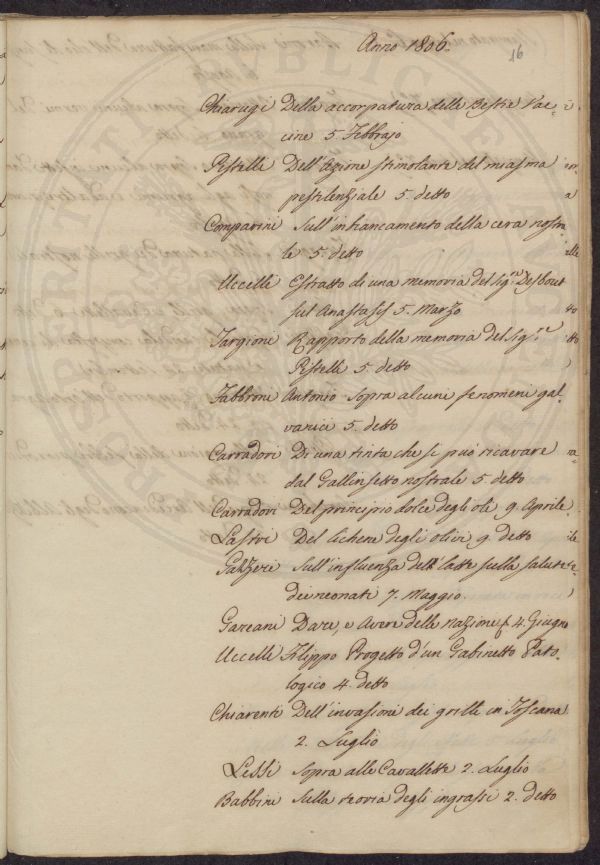 Anno 1806.
16
Chiarugi Della accorpatura delle Bestie Vac=
cine 5. Febbrajo
Ristelli Dell'Azione stimolante del miasma
pestilenziale 5. detto
Comparini Sull'imbiancamento della cera nostra
le 5. detto
Uccelli Estratto di una memoria del Sig.re Desbout
sul Anastasis 5. Marzo
Targioni Rapporto della memoria del Sig.r
Ristelli 5. detto
Fabbroni Antonio Sopra alcuni fenomeni gal=
vanici 5. detto
Carradori Di una tinta che si può ricavare
dal Gallinsetto nostrale 5. detto
Carradori Del principio dolce degli oli 9. Aprile
Lastri Del lichene degli olivi 9. detto
Pazzeri Sull'influenza dell'latte sulla salute
dei neonati 7. Maggio.
Gazeani Dare, e Avere delle Nazioni 4. Giugno
Uccelli Filippo Progetto d'un Gabinetto Pato=
logico 4. detto
Chiarenti Dell'invasioni dei grilli in Toscana
2. Luglio
Lessi Sopra alle Cavallette 2. Luglio
Babbini Sulla teoria degli ingrassi 2. detto